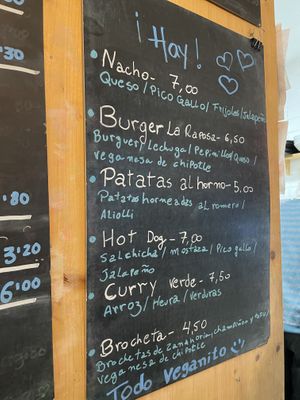 ¡Hay!
Nacho - 7,00
Queso / Pico Gallo / Frijoles / Jalapeño
Burger La Raposa - 6,50
Burguer / Lechuga / Pepinillo / Queso /
veganesa de chipotle
Patatas al horno - 5,00
Patatas horneadas al romero /
Aliolli
Hot Dog - 7,00
Salchicha / mostaza / Pico gallo /
Jalapeño
Curry verde - 7,50
Arroz / Heura / Verduras
Brocheta - 4,50
Brochetas de zanahoria, champiñón y
veganesa de chipotle
Todo veganito
.30
.80
3.20
6.00